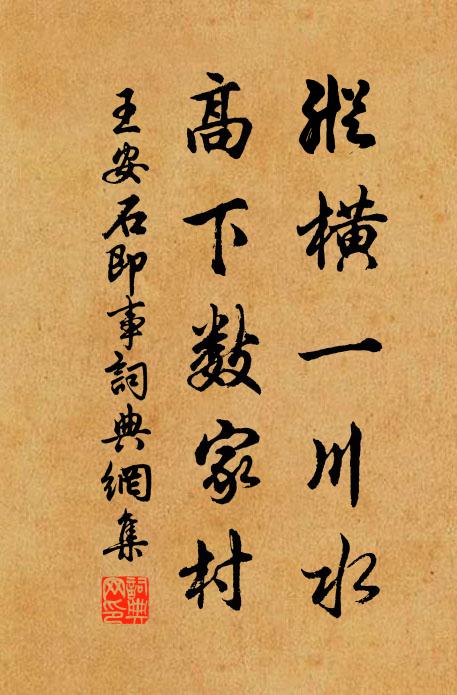 縱橫一川水
高下數家村
王安石即事詞典網集
詞典網印